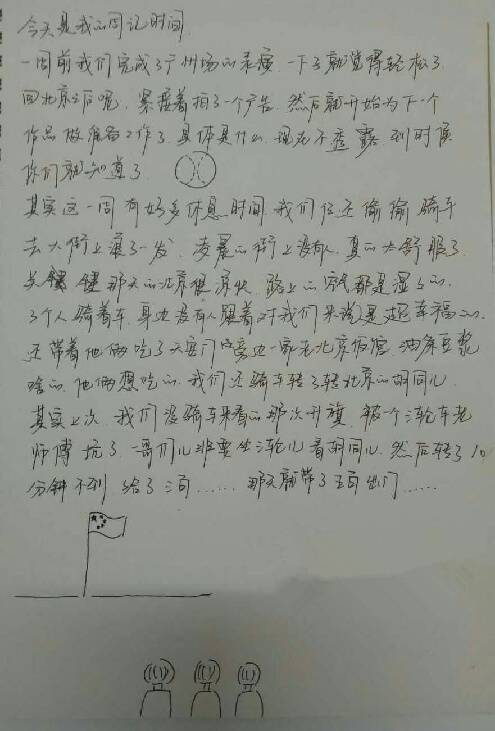 今天是我的周记时间
一周前我们完成了广州场的表演 一下子就觉得轻松了
回北京之后呢 紧接着拍了一个广告 然后就开始为下一个
作品做准备工作了 具体是什么 现在不透露 到时候
你们就知道了
其实这一周有好多休息时间 我们仨还偷偷骑车
去大街上浪了一发 凌晨的街上没有人 真的太舒服了
关键 键那天的北京很凉快 路上的空气都是湿湿的
3个人骑着车 身边没有人跟着 对我们来说是超幸福的
还带着他俩吃了天安门旁边一家老北京 油条豆浆
啥的 他俩想吃的 我们还骑车转了转北京的胡同儿
其实上次 我们没骑车来看的那次升旗 被一个三轮车老
师傅坑了 一哥们儿非要坐三轮儿看胡同儿 然后转了10
分钟不到 给了三百…… 那天就带了五百出门……